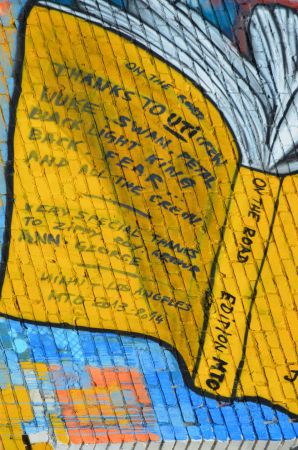 ON THE ROAD
THANKS TO UTI CREW
NUKE SWAN PEAR
BLACK LIGHT KING
BACK FEAR...
AND ALL THE CREW
VERY SPECIAL THANKS
TO ZIPPY ROY
ANN GEORGE
MIAMI - LOS ANGELES
MTO 2013-2014
ON THE ROAD
EDITION MTO